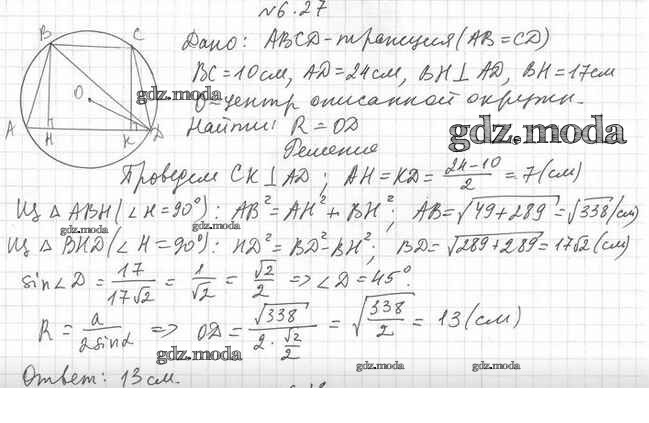 №6.27
B C
O
A H K D
Дано: ABCD-трапеция (AB=CD)
BC=10см, AD=24см, BH⊥AD, BH=17см
gdz.moda
O-центр описанной окружн.
Найти: R=OD
gdz.moda
Решение
Проведем CK⊥AD; AH=KD=\frac{24-10}{2}=7(см)
Из △ABH(∠H=90°): AB²=AH²+BH²; AB=√(49+289)=√338(см)
gdz.moda
Из △BHD(∠H=90°): HD²=BD²-BH²; BD=√(289+289)=17√2(см)
sin∠D=\frac{17}{17√2}=\frac{1}{√2}=\frac{√2}{2} ⇒ ∠D=45°.
R=\frac{a}{2sinα} ⇒ OD=\frac{√338}{2·\frac{√2}{2}}=√\frac{338}{2}=13(см)
gdz.moda
gdz.moda gdz.moda
Ответ: 13см.